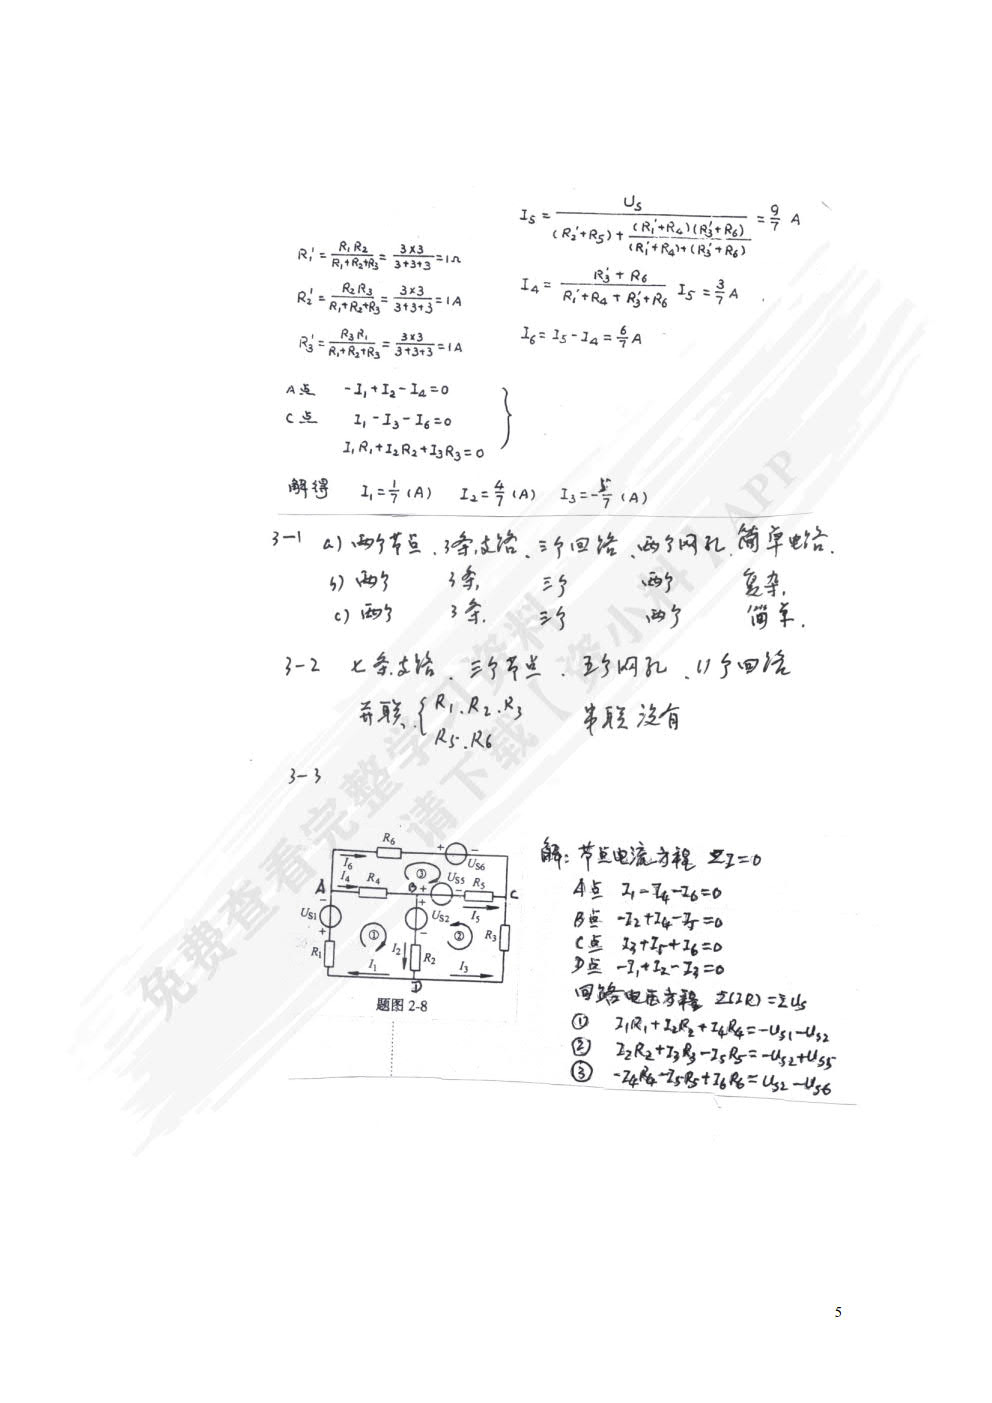 I₅ = U₅ / ((R₂'+R₅) + (R₁'+R₄)(R₃'+R₆) / ((R₁'+R₄)+(R₃'+R₆))) = 9/7 A
R₁' = R₁R₂ / (R₁+R₂+R₃) = 3×3 / (3+3+3) = 1Ω
R₂' = R₂R₃ / (R₁+R₂+R₃) = 3×3 / (3+3+3) = 1A
I₄ = (R₃'+R₆) / (R₁'+R₄+R₃'+R₆) I₅ = 3/7 A
R₃' = R₃R₁ / (R₁+R₂+R₃) = 3×3 / (3+3+3) = 1A
I₆ = I₅ - I₄ = 6/7 A
A点 -I₁+I₂-I₄=0
C点 I₁-I₃-I₆=0
I₁R₁+I₂R₂+I₃R₃=0
解得 I₁=1/7 (A) I₂=4/7 (A) I₃=-5/7 (A)
3-1 a) 两个节点、3条支路、三个回路、两个网孔、简单电路.
b) 两个 3条. 三个 两个 复杂.
c) 两个 3条. 三个 两个 简单.
3-2 七条支路、三个节点、五个网孔、11个回路
并联 { R₁.R₂.R₃ 串联没有
R₅.R₆
3-3
R₆
+ -
I₆ U_S6
③
A I₄ R₄ B + U_S5 R₅ C
U_S1 + U_S2 I₅
+ - R₃
① ②
R₁ I₂ R₂
I₁ I₃
D
题图 2-8
解: 节点电流方程 ΣI=0
A点 I₁-I₄-I₆=0
B点 -I₂+I₄-I₅=0
C点 I₃+I₅+I₆=0
D点 -I₁+I₂-I₃=0
回路电压方程 Σ(IR)=ΣUs
① I₁R₁+I₂R₂+I₄R₄=-U_S1-U_S2
② I₂R₂+I₃R₃-I₅R₅=-U_S2+U_S5
③ -I₄R₄-I₅R₅+I₆R₆=U_S2-U_S6
免费查看完整学习资料
请下载【资小料】APP
5